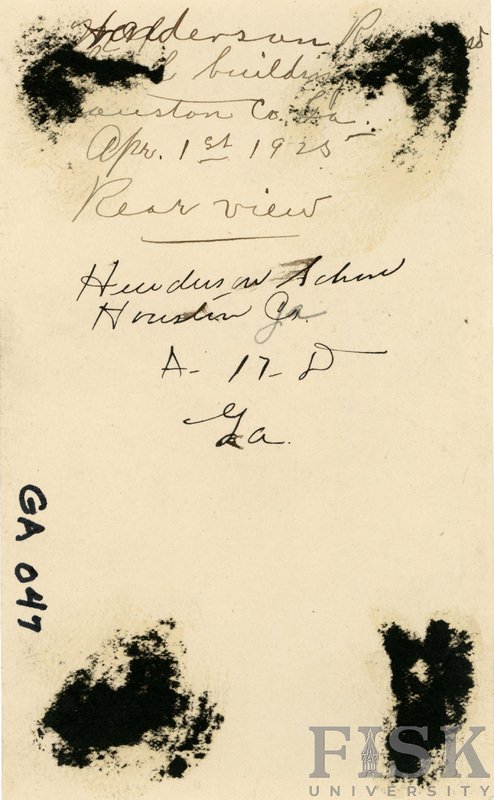 Henderson R
building
Houston Co. Ga.
Apr. 1st 1925
Rear view
Henderson School
Houston Co. Ga.
A- 17- D
Ga.
GA 047
FISK
UNIVERSITY